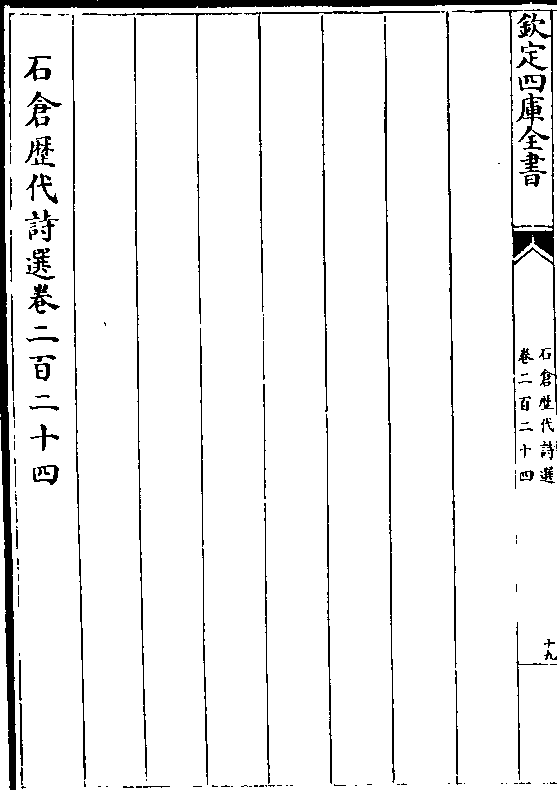 欽定四庫全書
石倉歴代詩選
卷二百二十四
十九
石倉歴代詩選卷二百二十四